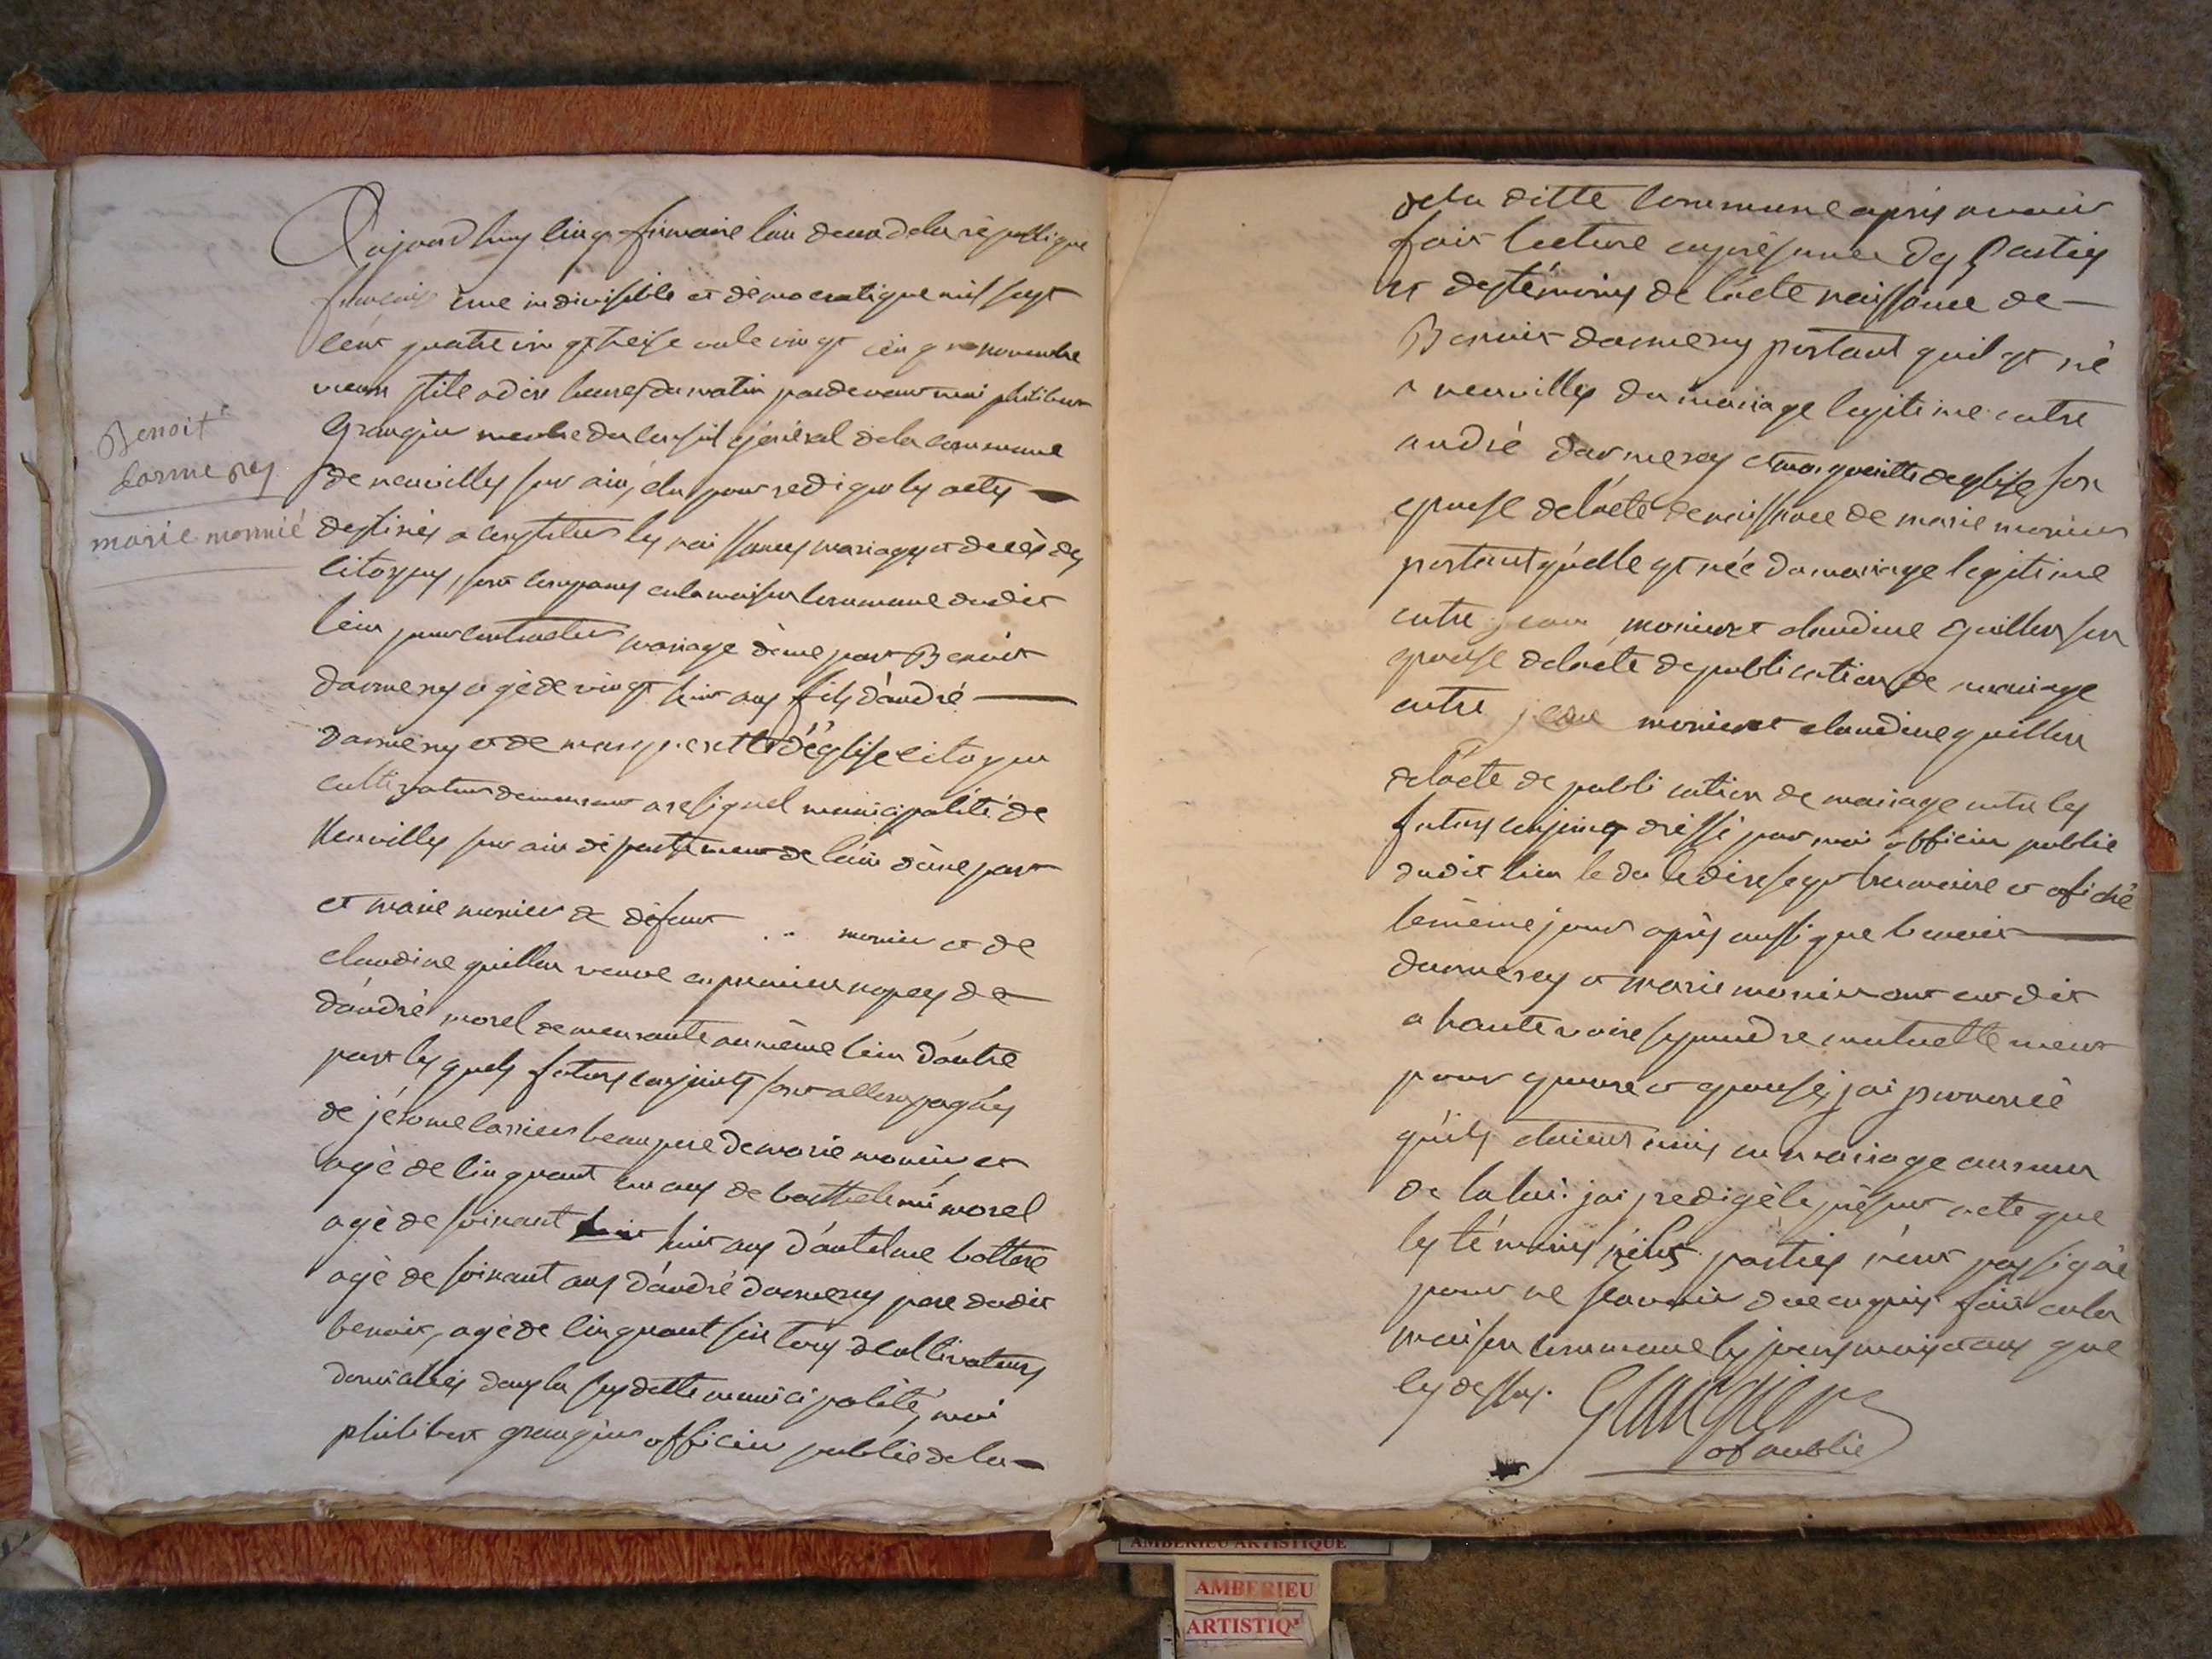 Aujourd huy cinq frimaire l'an deux de la republique
francaise une indivisible et démocratique mil sept
cent quatre vingt treise ou le vingt cinq novembre
vieux stile a dix heures du matin par devant moi philibert
Grangier membre du conseil général de la commune
de neuvilles sur ain, elu pour rediger les actes
destinés a constituer les naissances mariages et decès des
citoyens, sont comparus en la maison commune dudit
lieu pour contracter mariage d'une part Benoit
darmeray agé de vingt huit ans fils d'andré
darmeray et de marguerite d'église citoyen
cultivateur demeurant a resignel municipalité de
Neuvilles sur ain département de l'ain d'une part
et marie monier de défunt .. monier et de
claudine guillon veuve en premiere nopces de
d'andré morel demeurante au même lieu d'autre
part les quels futurs conjoints sont accompagnés
de jérome carrier beau pere de marie monier et
agé de cinquant un ans de barthelemi morel
agé de soixant huit ans d'antelme bottex
agé de soixant ans d'andré darmeray pere dudit
benoit, agé de cinquant six tous cultivateurs
domiciliés dans la susditte municipalité, moi
philibert grangier officier public de la
Benoit
darmerey
marie monnié
de la ditte commune après avoir
fait lecture en présence des Parties
et des témoins de l'acte naissance de
Benoit darmeray portant qu'il est né
a neuvilles du mariage legitime entre
andré darmeray et margueritte deglise son
epouse de l'acte de naissance de marie monier
portant qu'elle est née du mariage legitime
entre jean monier et claudine guillon son
epouse de l'acte de publication de mariage
entre jean monier et claudine guillon
de l'acte de publication de mariage entre les
futurs conjoints dressé par moi officier public
dudit lieu le du le dix sept brumaire et afiché
le même jour après aussi que benoit
darmerey et marie monier ont eut dit
a haute voix se prendre mutuellement
pour epoux et epouse, j'ai prononcé
qu'ils étaient unis en mariage au nom
de la loi. j'ai redigé le présent acte que
les témoins parties n'ont pas signé
pour ne scavoir de ce enquis fait en la
maison commune les jours mois et ans que
cy dessus. Grangier
of public
AMBERIEU ARTISTIQUE
AMBERIEU
ARTISTIQ